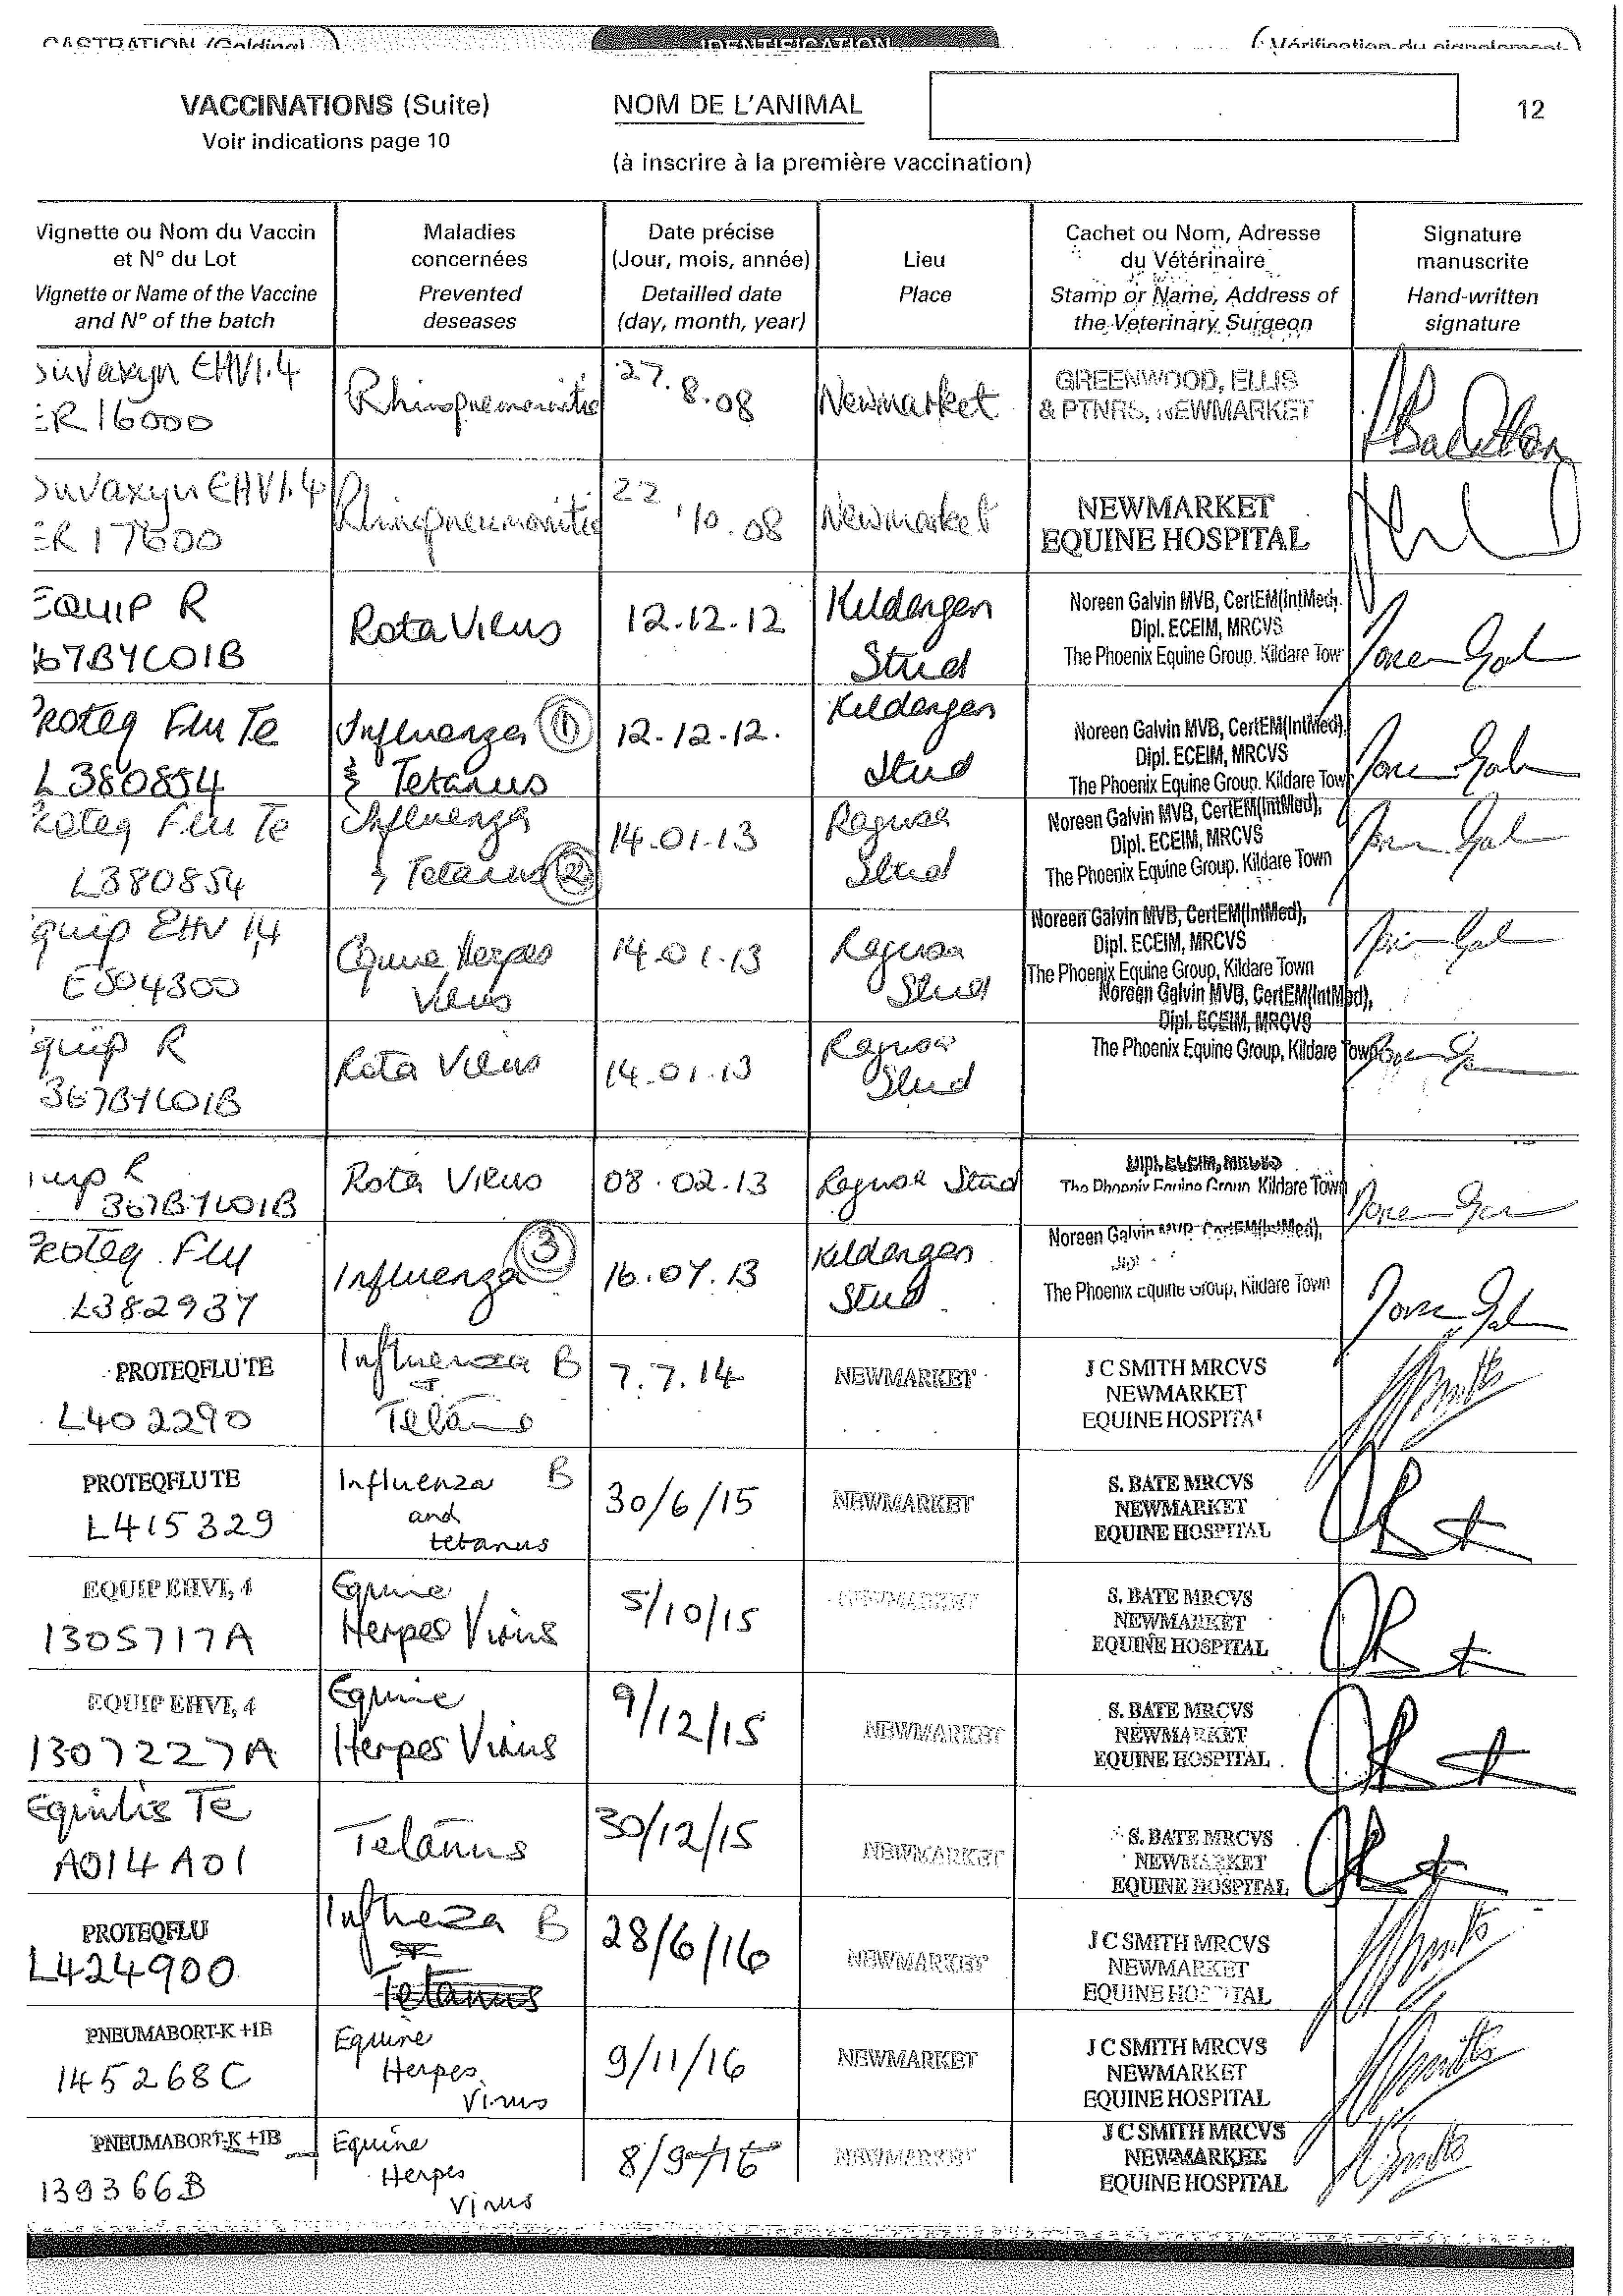 CASTRATION (Gelding)
IDENTIFICATION
Vérification du signalement
VACCINATIONS (Suite)
Voir indications page 10
NOM DE L'ANIMAL
12
(à inscrire à la première vaccination)
Vignette ou Nom du Vaccin
et N° du Lot
Vignette or Name of the Vaccine
and N° of the batch
Maladies
concernées
Prevented
deseases
Date précise
(Jour, mois, année)
Detailled date
(day, month, year)
Lieu
Place
Cachet ou Nom, Adresse
du Vétérinaire
Stamp or Name, Address of
the Veterinary Surgeon
Signature
manuscrite
Hand-written
signature
Duvaxyn EHV1.4
ER 16000
Rhinopneumonitis
27.8.08
Newmarket
GREENWOOD, ELLIS
& PTNRS, NEWMARKET
Duvaxyn EHV1.4
ER 17600
Rhinopneumonitis
22.10.08
Newmarket
NEWMARKET
EQUINE HOSPITAL
EQUIP R
367BYC01B
Rota Virus
12.12.12
Kildangan
Stud
Noreen Galvin MVB, CertEM(IntMed),
Dipl. ECEIM, MRCVS
The Phoenix Equine Group, Kildare Tow
Proteq Flu Te
L380854
Influenza ①
& Tetanus
12.12.12.
Kildangan
Stud
Noreen Galvin MVB, CertEM(IntMed),
Dipl. ECEIM, MRCVS
The Phoenix Equine Group, Kildare Town
Proteq Flu Te
L380854
Influenza
& Tetanus ②
14.01.13
Ragusa
Stud
Noreen Galvin MVB, CertEM(IntMed),
Dipl. ECEIM, MRCVS
The Phoenix Equine Group, Kildare Town
Equip EHV 1,4
E504300
Equine Herpes
Virus
14.01.13
Ragusa
Stud
Noreen Galvin MVB, CertEM(IntMed),
Dipl. ECEIM, MRCVS
The Phoenix Equine Group, Kildare Town
Equip R
367BYC01B
Rota Virus
14.01.13
Ragusa
Stud
Noreen Galvin MVB, CertEM(IntMed),
Dipl. ECEIM, MRCVS
The Phoenix Equine Group, Kildare Town
Equip R
367BYC01B
Rota Virus
08.02.13
Ragusa Stud
Dipl. ECEIM, MRCVS
The Phoenix Equine Group, Kildare Town
Proteq Flu
L382937
Influenza ③
16.07.13
Kildangan
Stud
Noreen Galvin MVB, CertEM(IntMed),
The Phoenix Equine Group, Kildare Town
PROTEQFLU TE
L402290
Influenza B
+
Tetanus
7.7.14
NEWMARKET
J C SMITH MRCVS
NEWMARKET
EQUINE HOSPITAL
PROTEQFLU TE
L415329
Influenza B
and
tetanus
30/6/15
NEWMARKET
S. BATE MRCVS
NEWMARKET
EQUINE HOSPITAL
EQUIP EHV1, 4
1305717A
Equine
Herpes Virus
5/10/15
NEWMARKET
S. BATE MRCVS
NEWMARKET
EQUINE HOSPITAL
EQUIP EHV1, 4
1307227A
Equine
Herpes Virus
9/12/15
NEWMARKET
S. BATE MRCVS
NEWMARKET
EQUINE HOSPITAL
Equilis Te
A014A01
Tetanus
30/12/15
NEWMARKET
S. BATE MRCVS
NEWMARKET
EQUINE HOSPITAL
PROTEQFLU
L424900
Influenza B
Tetanus
28/6/16
NEWMARKET
J C SMITH MRCVS
NEWMARKET
EQUINE HOSPITAL
PNEUMABORT-K +1B
145268C
Equine
Herpes
Virus
9/11/16
NEWMARKET
J C SMITH MRCVS
NEWMARKET
EQUINE HOSPITAL
PNEUMABORT-K +1B
139366B
Equine
Herpes
Virus
8/9/16
NEWMARKET
J C SMITH MRCVS
NEWMARKET
EQUINE HOSPITAL